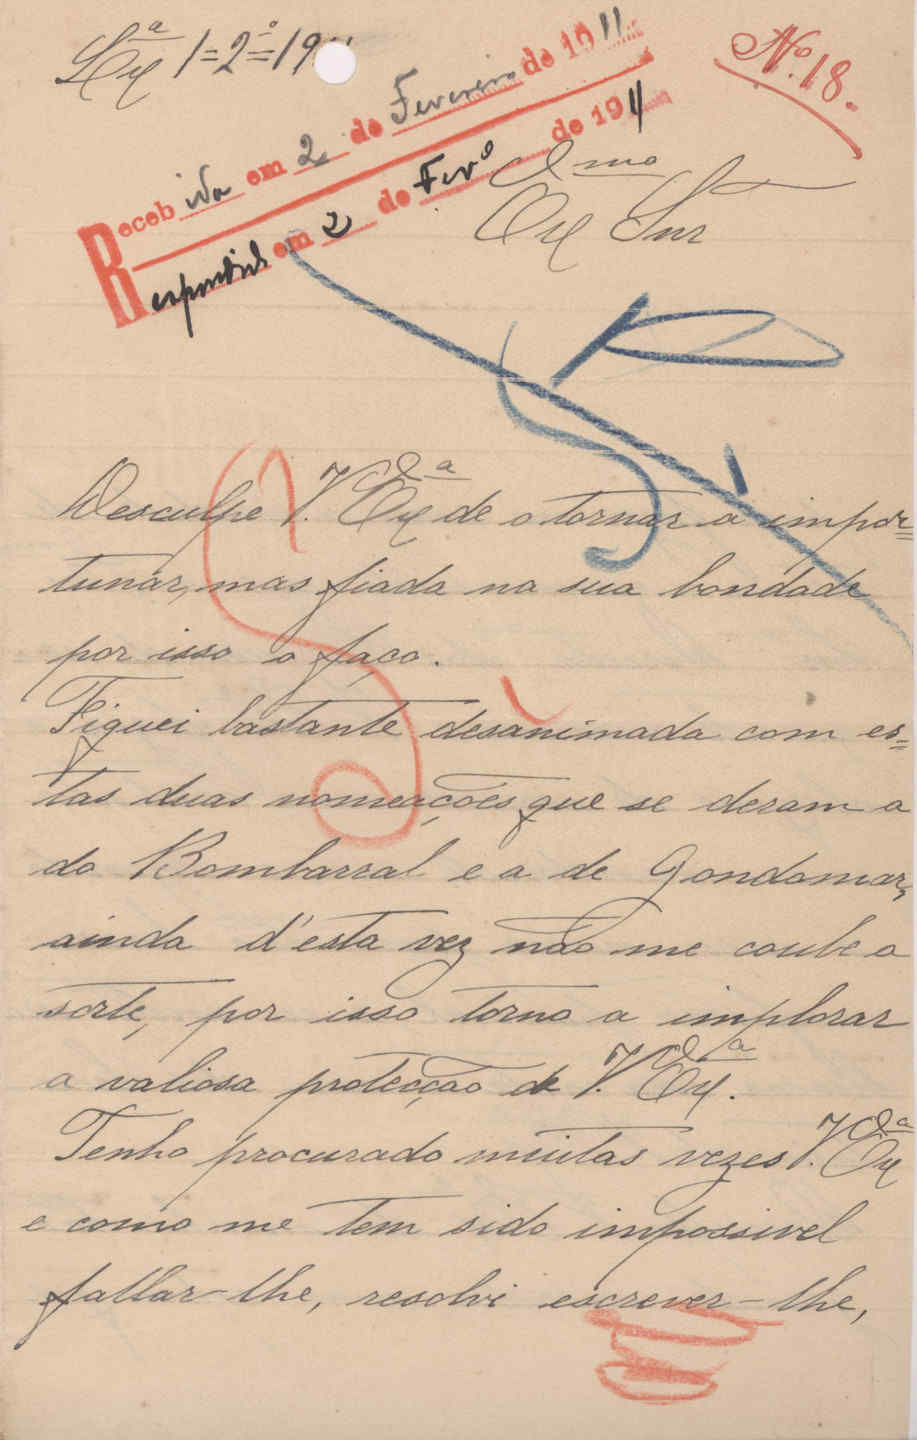 Lxª 1=2º=19
Nº 18.
Recebida em 2 de Fevereiro de 1911
Respondida em 2 de Fevº de 1911
Exmo Snr
Desculpe V. Exª de o tornar a impor=
tunar, mas fiada na sua bondade
por isso o faço.
Fiquei bastante desanimada com es=
tas duas nomeações que se deram a
do Bombarral e a de Gondomar,
ainda d'esta vez não me coube a
sorte, por isso torno a implorar
a valiosa protecção de V. Exª.
Tenho procurado muitas vezes V. Exª
e como me tem sido impossivel
fallar-lhe, resolvi escrever-lhe,